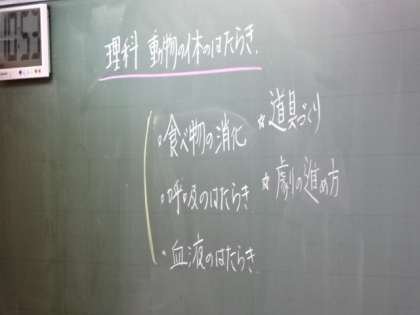 10:55
理科 動物の体のはたらき.
・食べ物の消化
・呼吸のはたらき
・血液のはたらき.
☆道具づくり
☆劇の進め方